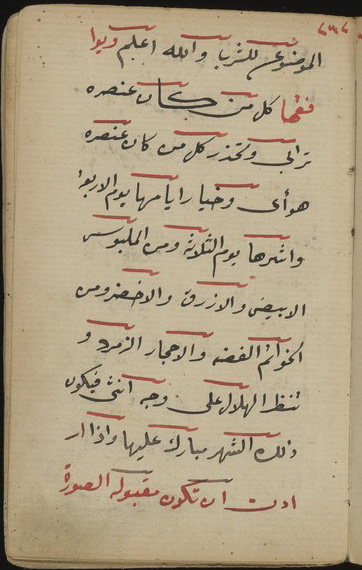 الموضوعين للشرب والله اعلم ويوا
فقها كل من كان عنصره
ترابى وتحذر كل من كان عنصره
هوأى وخيار ايامها يوم الاربوا
واشرها يوم الثلاث ومن الملبوس
الابيض والازرق والاخضر ومن
الخواتم الفضه والاحجار الزمرد و
تنظر الهلال على وجه انثى فيكون
ذلك الشهر مبارك عليها واذا ار
ادت ان تكون مقبولة الصورة